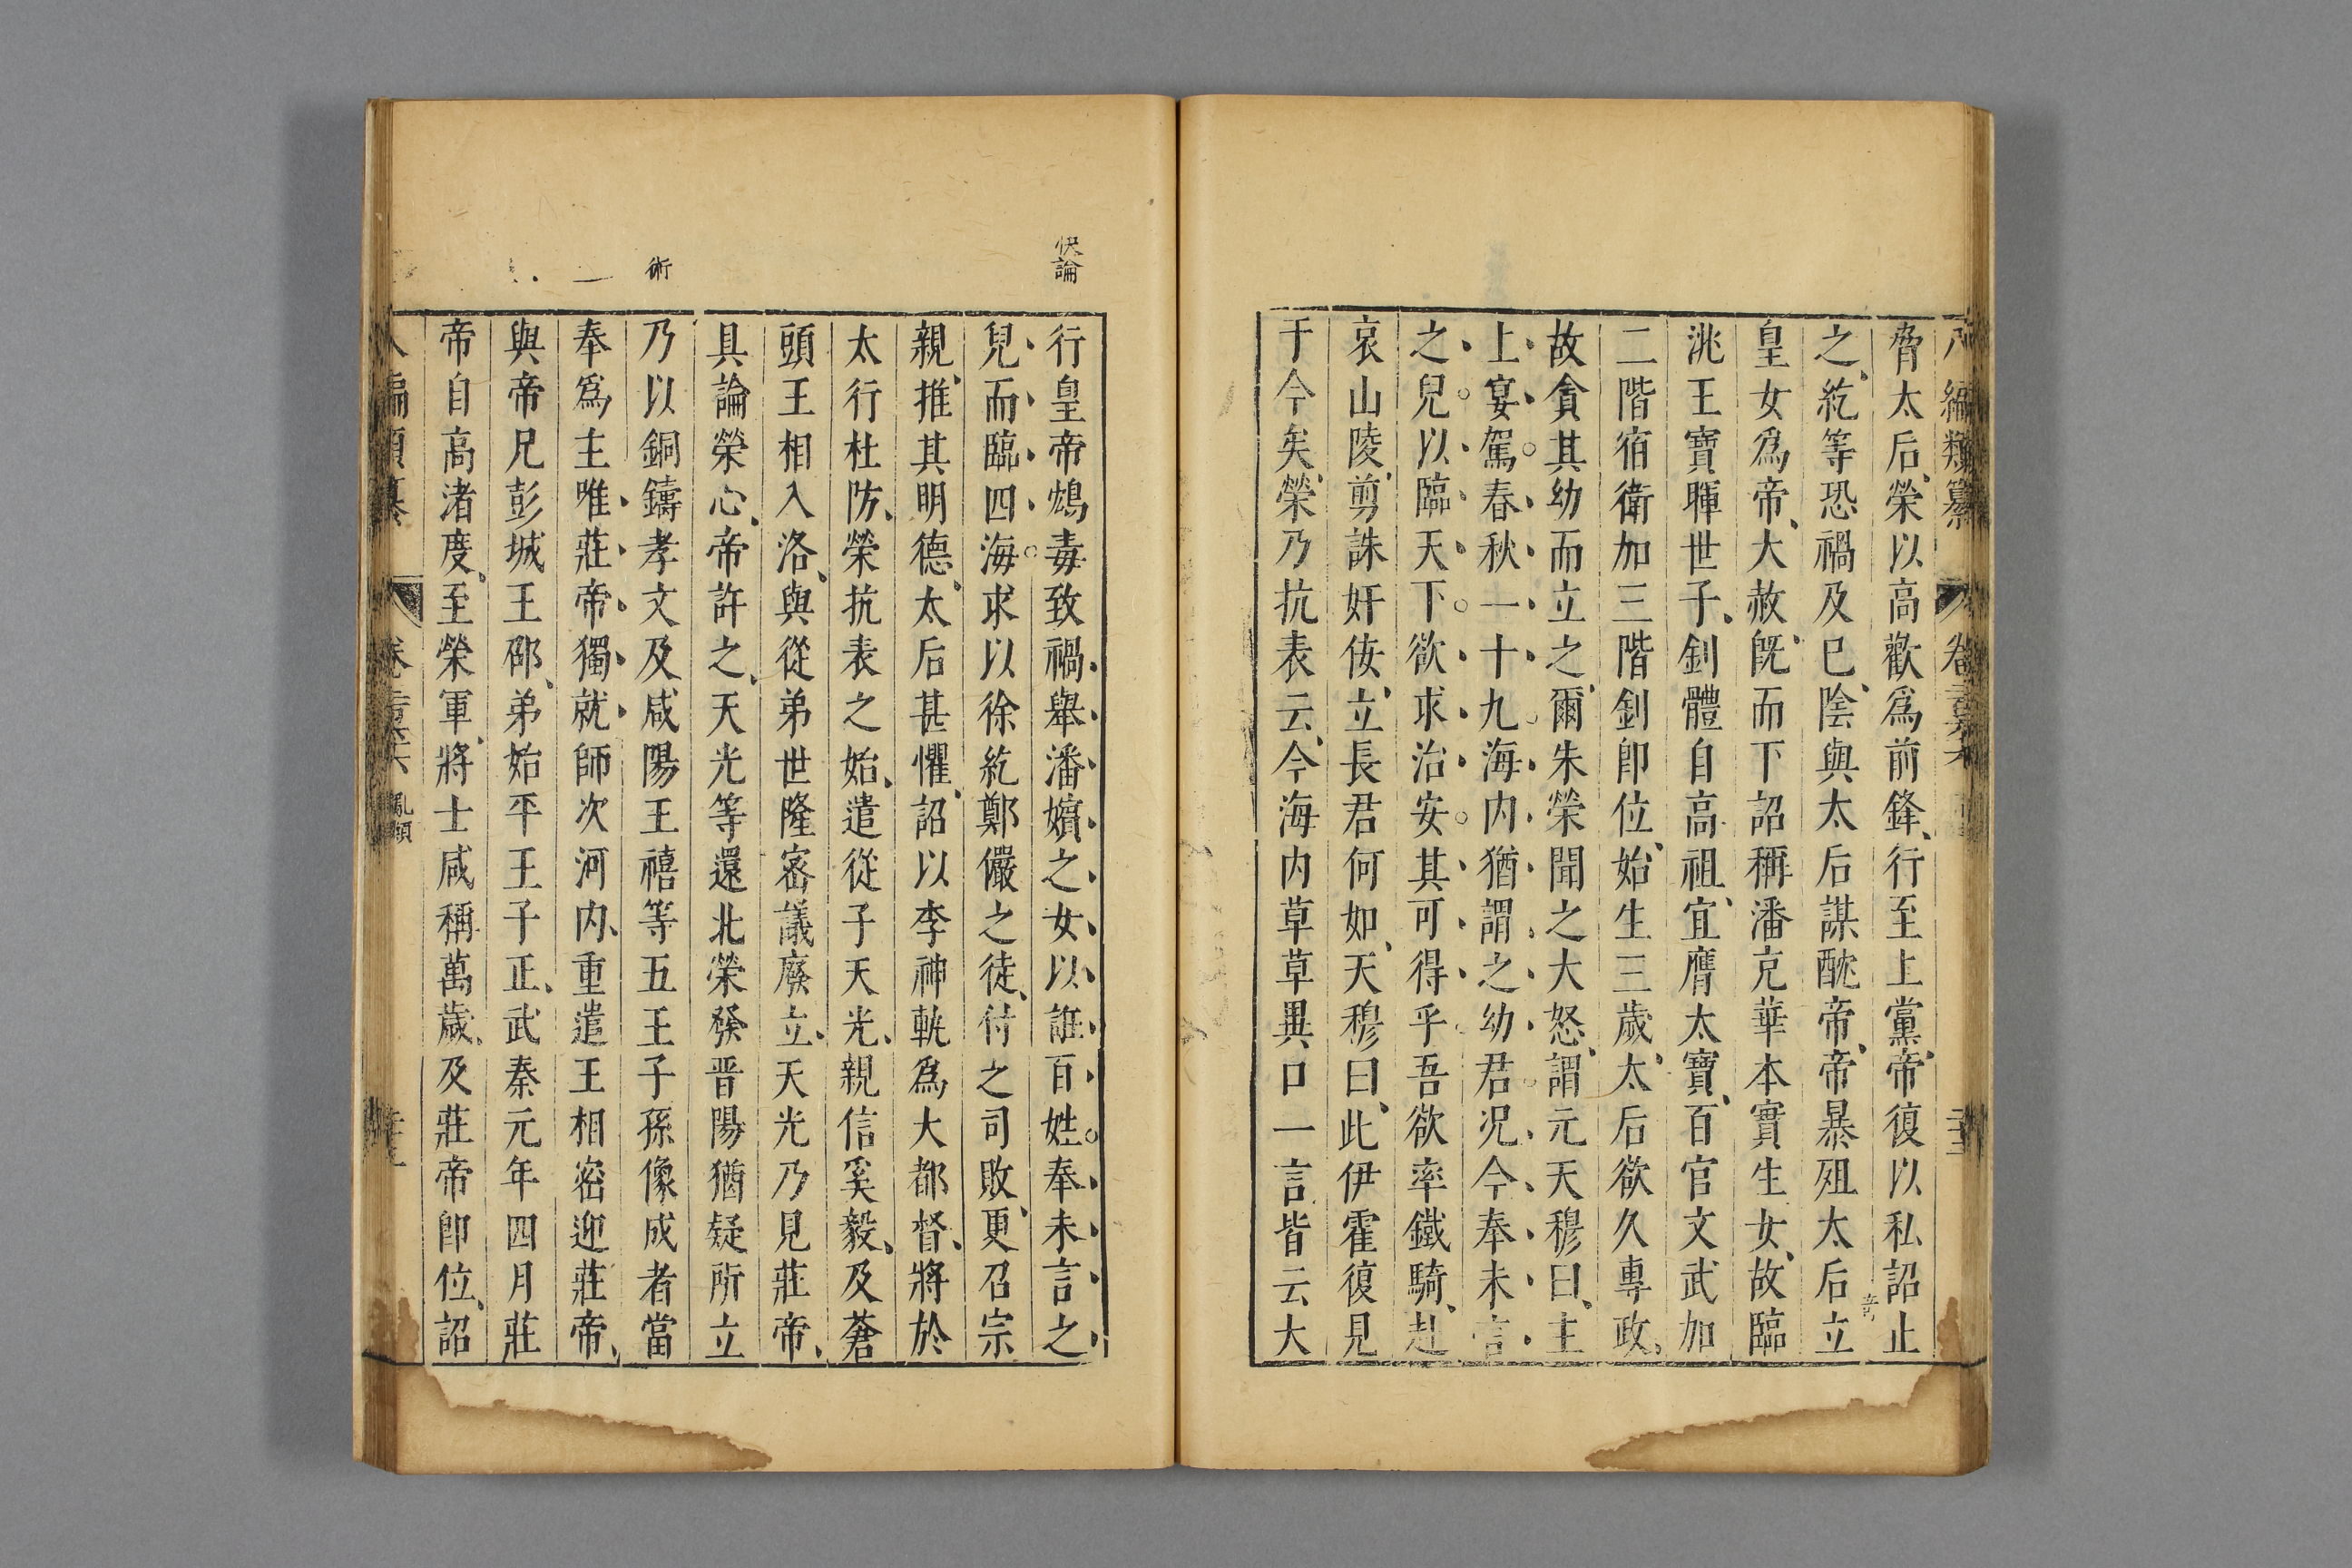 八編類纂 卷
脅太后、榮以高歡爲前鋒、行至上黨、帝復以私詔止
之、紇等恐禍及已、陰與太后謀酖帝、帝暴殂太后立
皇女爲帝、大赦、旣而下詔稱潘克華本實生女、故臨
洮王寶暉世子、釗體自高祖、宜膺太寶、百官文武加
二階宿衛加三階釗卽位、始生三歲、太后欲久專政、
故貪其幼而立之、爾朱榮聞之大怒、謂元天穆曰、主
上宴駕春秋一十九海内猶謂之幼君况今奉未言
之兒以臨天下欲求治安其可得乎吾欲率鐵騎、赴
哀山陵、剪誅奸佞、立長君何如、天穆曰、此伊霍復見
于今矣、榮乃抗表云、今海内草草異口一言皆云大
快論
行皇帝鴆毒致禍舉潘嬪之女以誑百姓奉未言之
兒而臨四海求以徐紇鄭儼之徒、付之司敗、更召宗
親、推其明德、太后甚懼、詔以李神軌爲大都督、將於
太行杜防、榮抗表之始、遣從子天光、親信奚毅、及蒼
頭王相入洛、與從弟世隆密議廢立、天光乃見莊帝、
具論榮心、帝許之、天光等還北榮發晋陽猶疑所立
術
乃以銅鑄孝文及咸陽王禧等五王子孫像成者當
奉爲主唯莊帝獨就師次河内、重遣王相密迎莊帝、
與帝兄彭城王邵、弟始平王子正、武泰元年四月莊
帝自高渚度、至榮軍、將士咸稱萬歲、及莊帝卽位、詔
八編類纂 卷